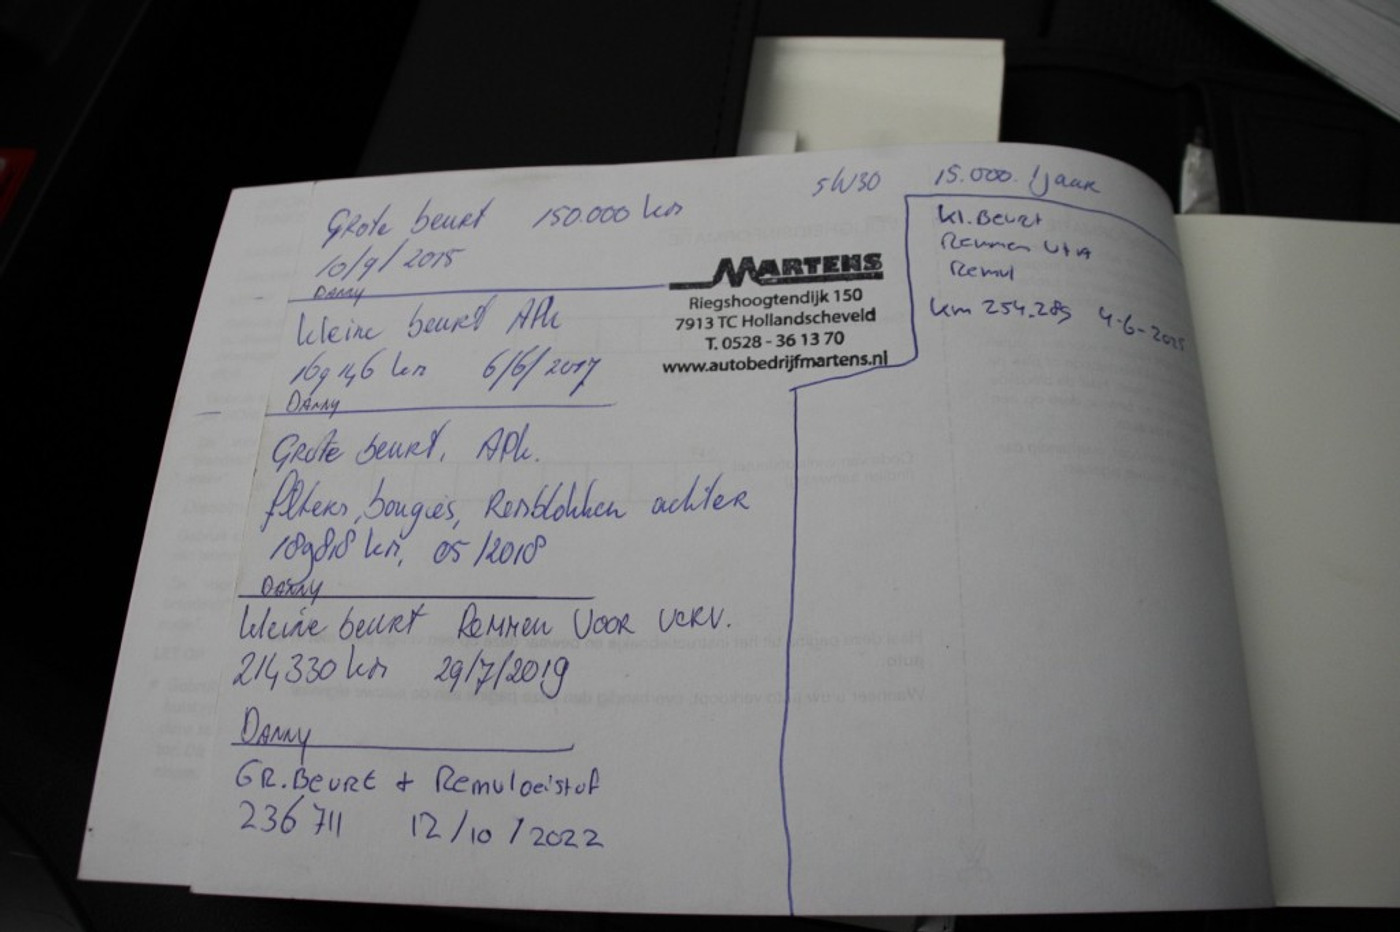 5W30 15.000. /jaar
Grote beurt 150.000 km
10/9/2015
Danny
MARTENS
Riegshoogtendijk 150
7913 TC Hollandscheveld
T. 0528 - 36 13 70
www.autobedrijfmartens.nl
kleine beurt APK
169146 km 6/6/2017
Danny
Grote beurt, APK.
filters, bougies, Remblokken achter
189818 km, 05/2018
Danny
kleine beurt Remmen voor verv.
214,330 km 29/7/2019
Danny
GR. Beurt + Remvloeistof
236 711 12/10/2022
kl. Beurt
Remmen
Remvl
km 254.289 4-6-2025